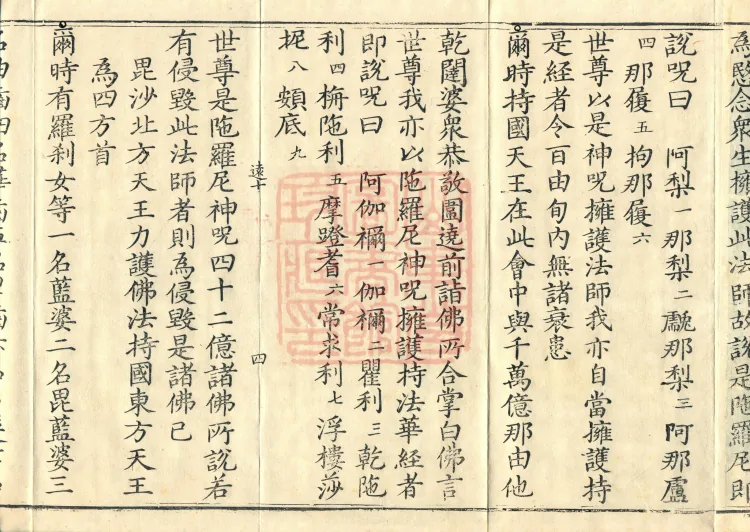 為愍念衆生擁護此法師故說是陁羅尼即
說呪曰　阿梨一那梨二那梨三阿那盧
四那履五拘那履六
世尊以是神呪擁護法師我亦自當擁護持
是經者令百由旬內無諸衰患
爾時持國天王在此會中與千萬億那由他
乾闥婆衆恭敬圍遶前詣佛所合掌白佛言
世尊我亦以陁羅尼神呪擁護持法華經者
即說呪曰　阿伽禰一伽禰二瞿利三乾陁
利四栴陁利五摩蹬耆六常求利七浮樓莎
抳八頞底九
遠十　四
世尊是陁羅尼神呪四十二億諸佛所說若
有侵毀此法師者則為侵毀是諸佛已
毘沙北方天王力護佛法持國東方天王
為四方首
爾時有羅刹女等一名藍婆二名毘藍婆三